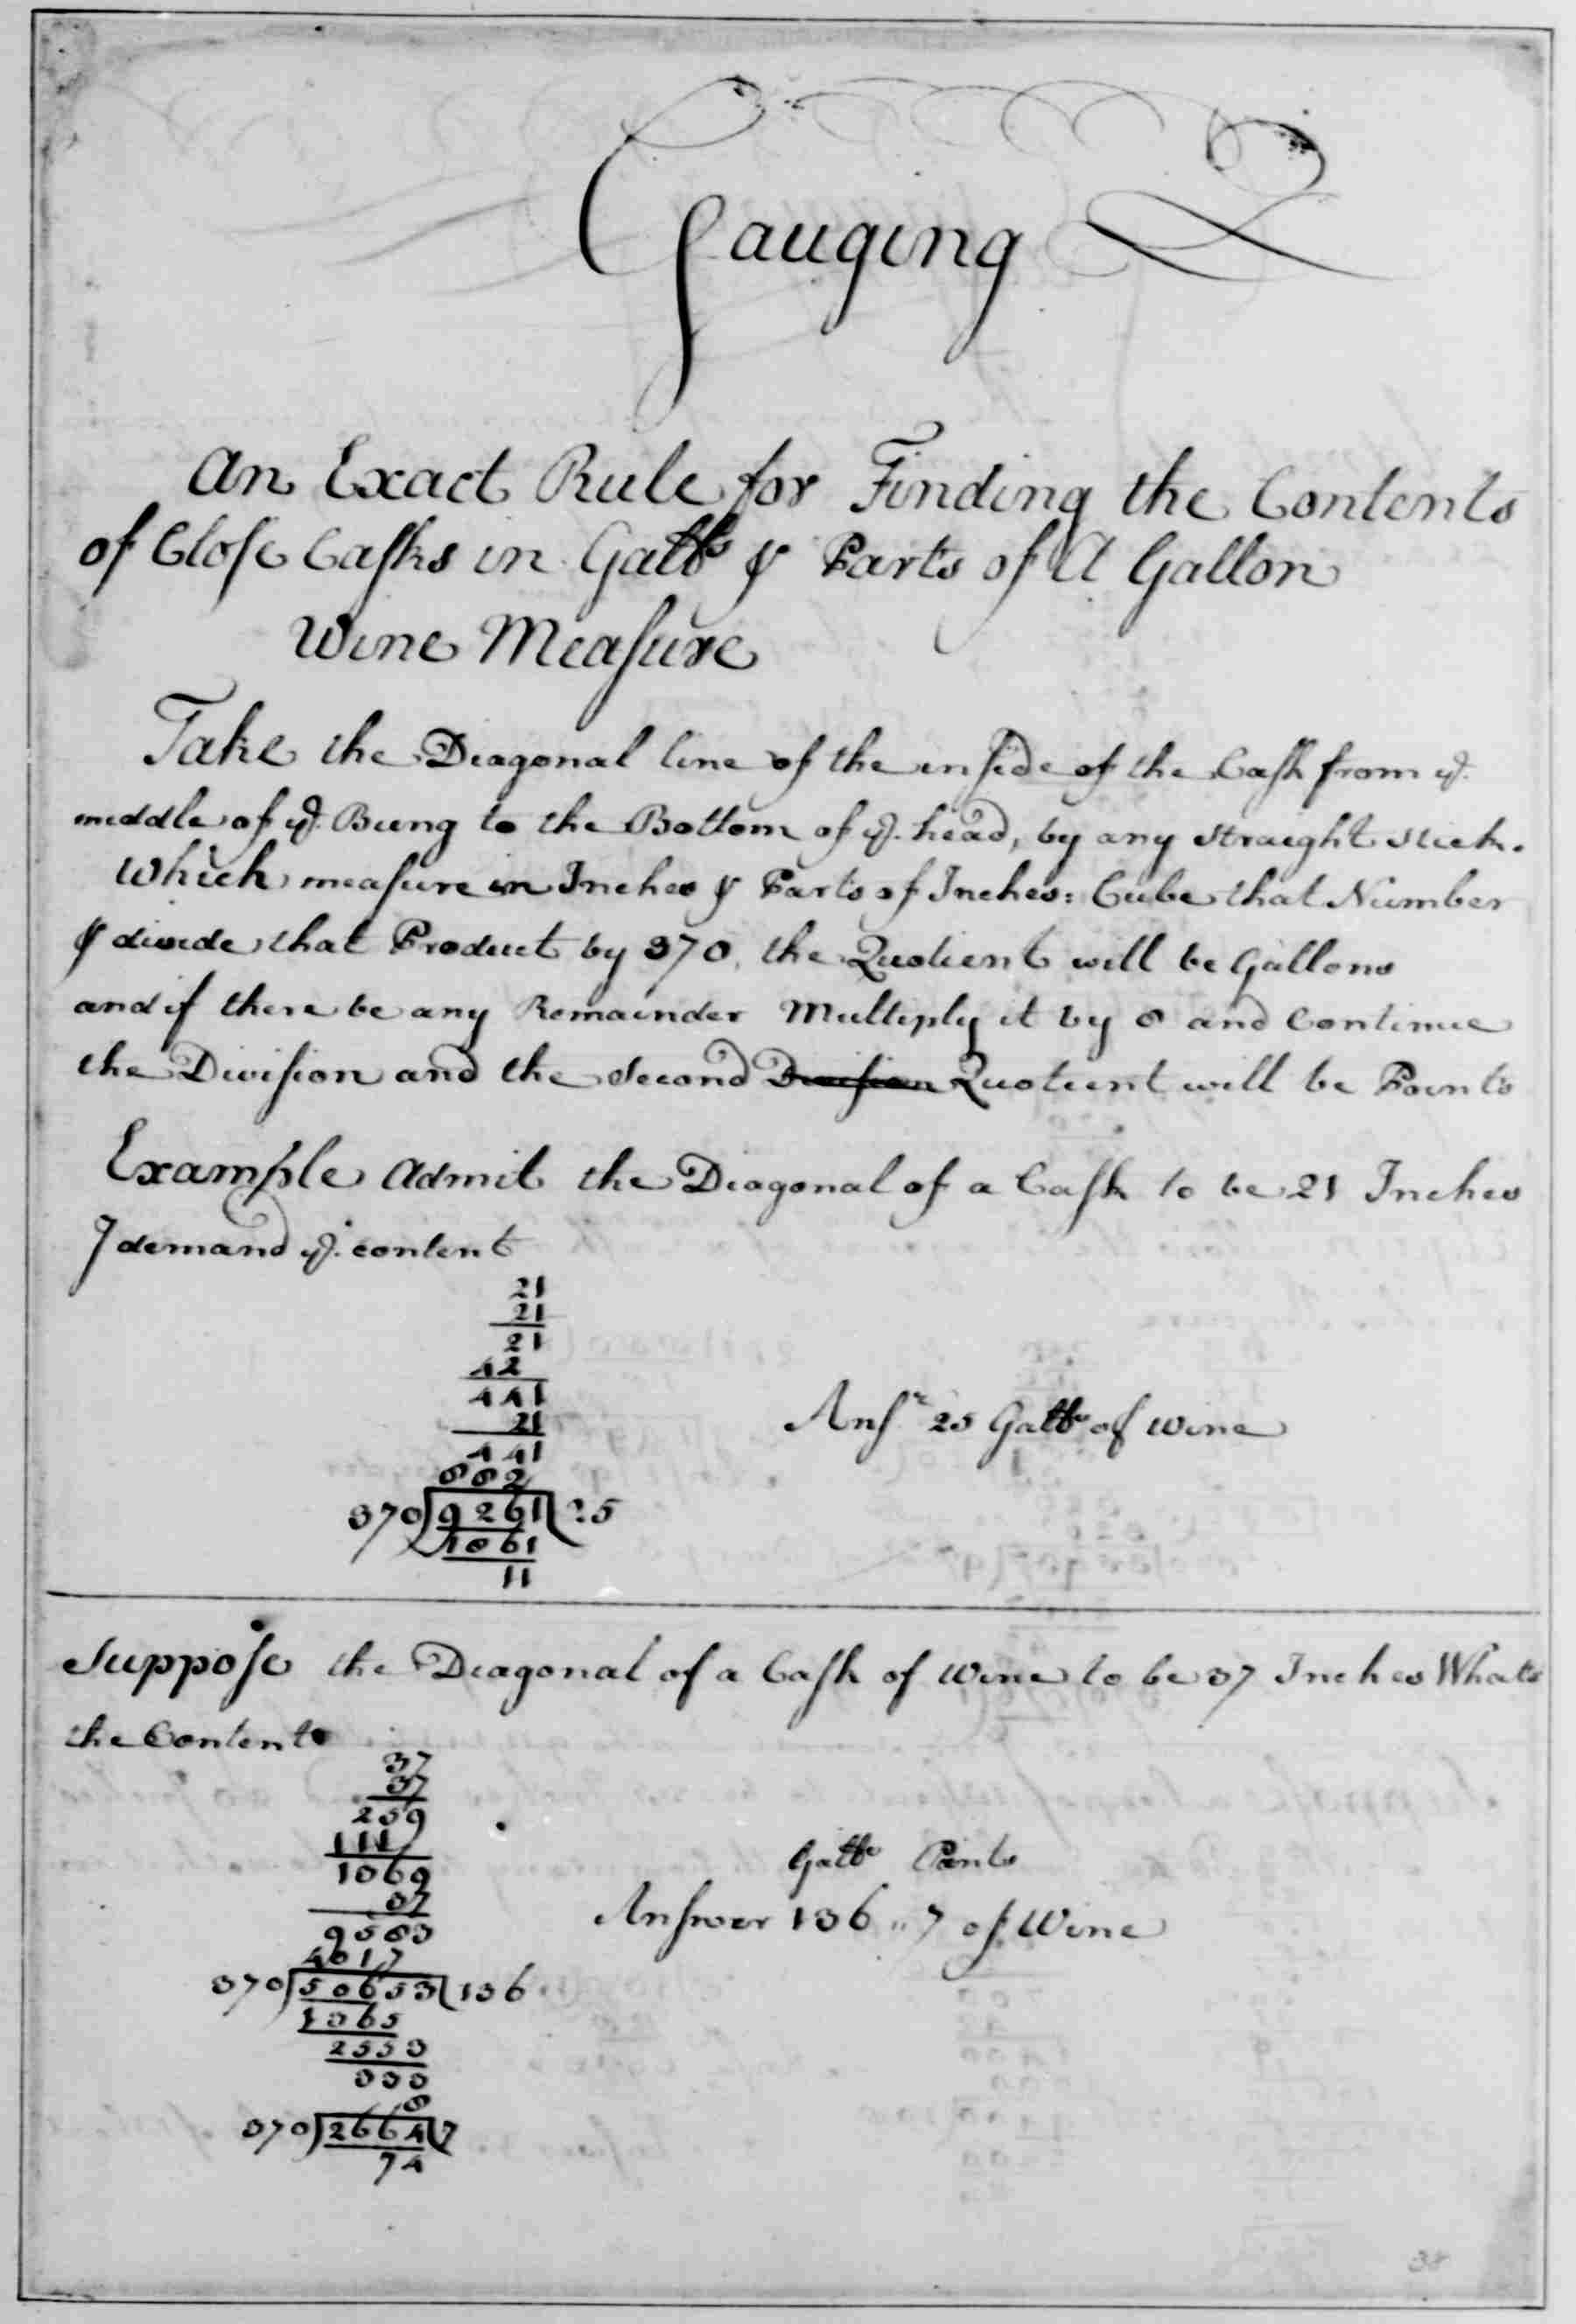 Gauging
An Exact Rule for Finding the Contents
of Close Casks in Galls & Parts of A Gallon
Wine Measure
Take the Diagonal line of the inside of the Cask from ye.
middle of ye. Bung to the Bottom of ye. head, by any straight stick.
Which measure in Inches & Parts of Inches: Cube that Number
& divide that Product by 370, the Quotient will be Gallons
and if there be any Remainder Multiply it by 8 and Continue
the Division and the Second Division Quotient will be Points
Example Admit the Diagonal of a Cask to be 21 Inches
I demand ye. content
21
21
21
42
441
21
441
882
370 9261 25
1861
11
Ansr 25 Galls of Wine
Suppose the Diagonal of a Cask of Wine to be 37 Inches Whats
the Contents
37
37
259
111
1369
37
9583
4017
370 50653 136
1365
2553
333
8
370 2664 7
74
Galls Pints
Answer 136 " 7 of Wine
38